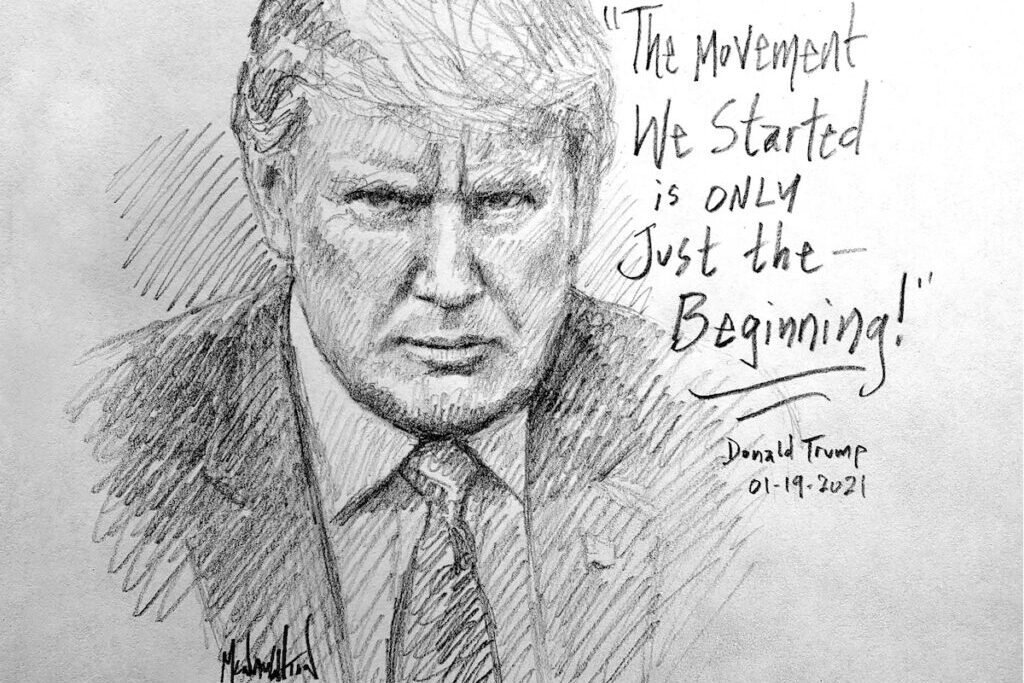 "The Movement
We Started
is ONLY
Just the —
Beginning!"
Donald Trump
01-19-2021